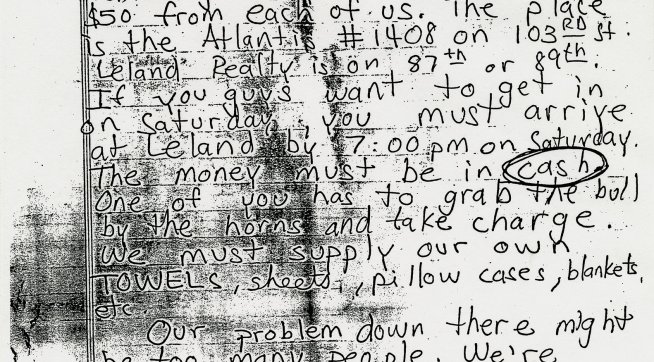 $50 from each of us. The place
is the Atlantis #1408 on 103RD st.
Leland Realty is on 87th or 89th.
If you guys want to get in
on Saturday, you must arrive
at Leland by 7:00 pm on Saturday.
The money must be in cash.
One of you has to grab the bull
by the horns and take charge.
We must supply our own
TOWELS, sheets, pillow cases, blankets,
etc.
Our problem down there might
be too many people. We're